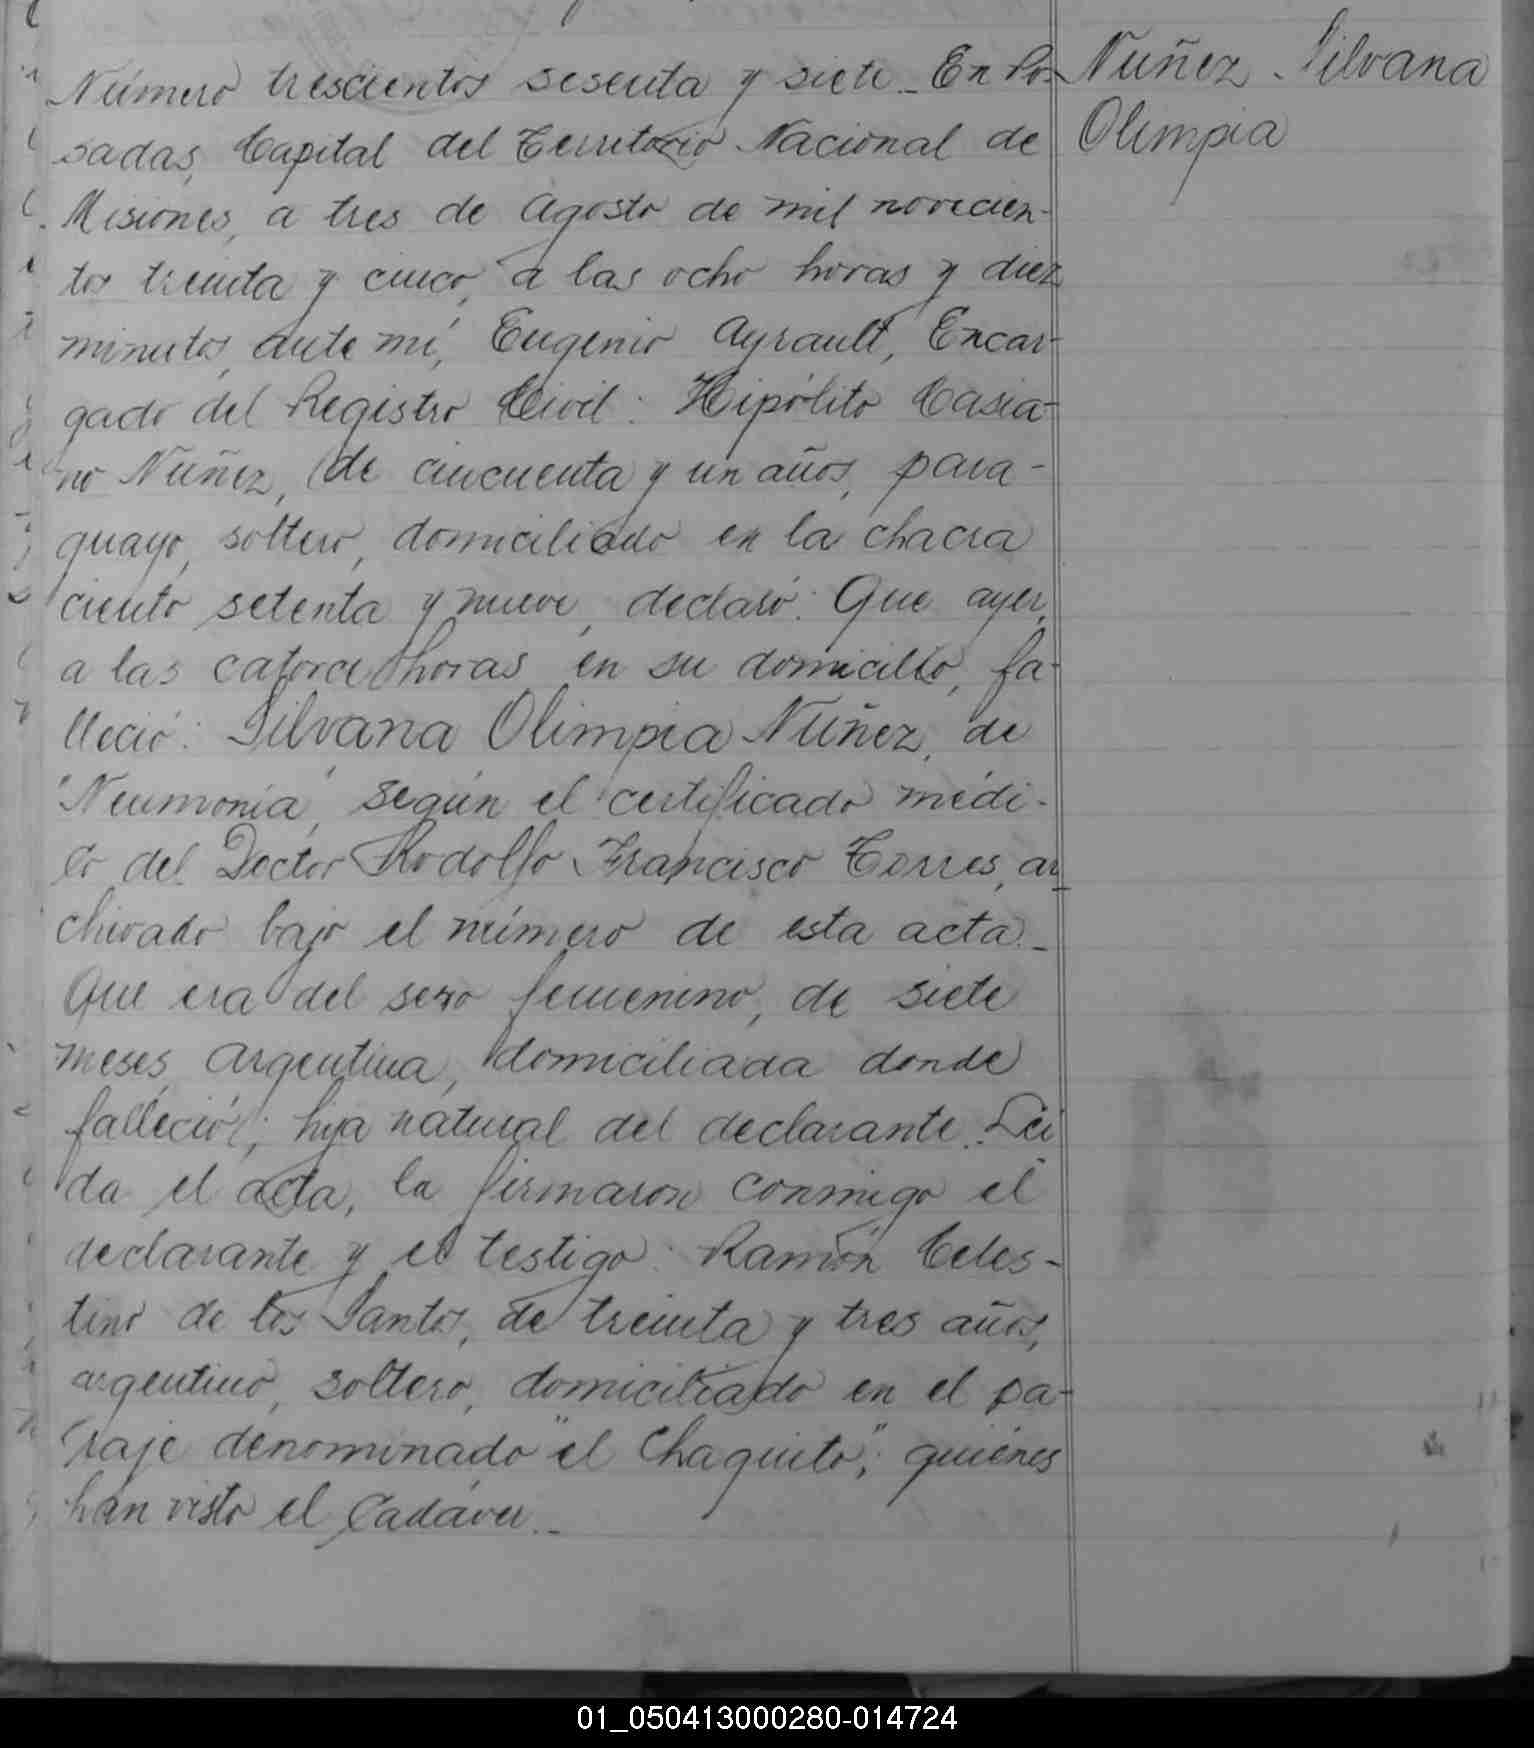 Número trescientos sesenta y siete_ En Po-
sadas, Capital del Territorio Nacional de
Misiones, a tres de Agosto de mil novecien-
tos treinta y cinco, a las ocho horas y diez
minutos, ante mí, Eugenio Ayrault, Encar-
gado del Registro Civil: Hipólito Casia-
no Nuñez, de cincuenta y un años, para-
guayo, soltero, domiciliado en la chacra
ciento setenta y nueve, declaró: Que ayer,
a las catorce horas en su domicilio, fa-
lleció: Silvana Olimpia Nuñez, de
"Neumonía", según el certificado médi-
co del Doctor Rodolfo Francisco Torres, ar
chivado bajo el número de esta acta._
Que era del sexo femenino, de siete
meses, argentina, domiciliada donde
falleció; hija natural del declarante. Leí
da el acta, la firmaron conmigo el
declarante y el testigo: Ramón Celes-
tino de los Santos, de treinta y tres años,
argentino, soltero, domiciliado en el pa-
raje denominado "el Chaquito"; quiénes
han visto el Cadáver._
Nuñez - Silvana
Olimpia
01_050413000280-014724